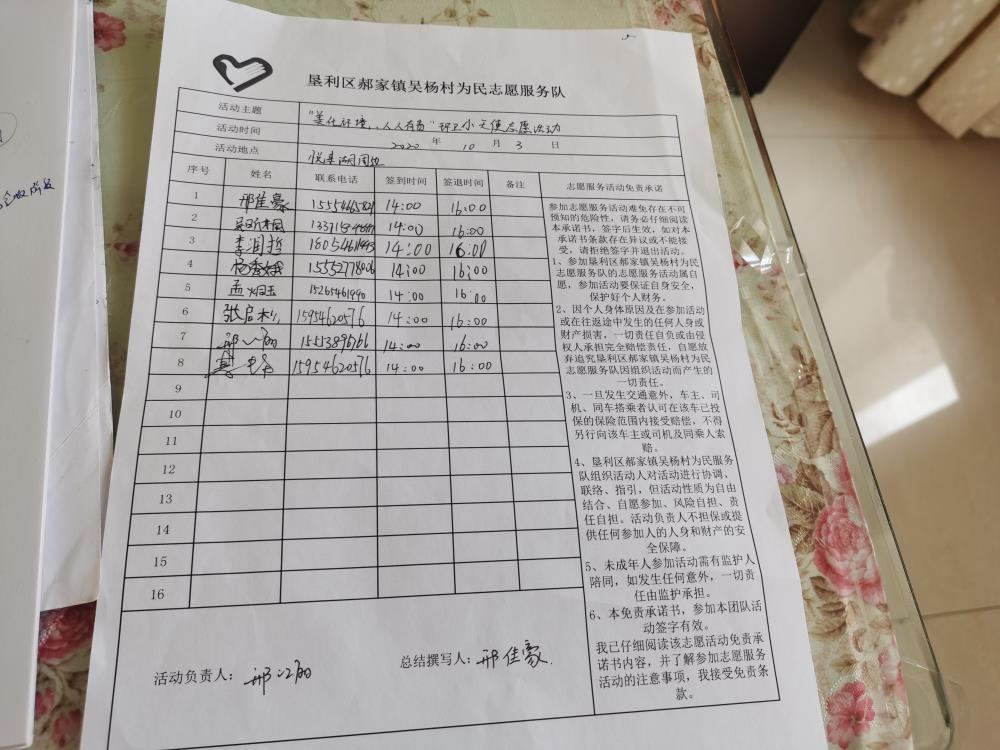 垦利区郝家镇吴杨村为民志愿服务队
活动主题 "美化环境,人人有责"环卫小天使志愿活动
活动时间 2020 年 10 月 3 日
活动地点 悦来湖周边
序号 姓名 联系电话 签到时间 签退时间 备注 志愿服务活动免责承诺
1 邢佳豪 14:00 16:00
2 14:00 16:00
3 李润哲 14:00 16:01
4 杨秀娥 15552778006 14:00 16:00
5 孟炯玉 15265461990 14:00 16:00
6 张启利 15954620576 14:00 16:00
7 14:00 16:00
8 15954620576 14:00 16:00
9
10
11
12
13
14
15
16
参加志愿服务活动难免存在不可
预知的危险性,请务必仔细阅读
本承诺书,签字后生效,如对本
承诺书条款存在异议或不能接
受,请拒绝签字并退出活动。
1、参加垦利区郝家镇吴杨村为民
志愿服务队的志愿服务活动属自
愿,参加活动要保证自身安全,
保护好个人财务。
2、因个人身体原因及在参加活动
或在往返途中发生的任何人身或
财产损害,一切责任自负或由侵
权人承担完全赔偿责任,自愿放
弃追究垦利区郝家镇吴杨村为民
志愿服务队因组织活动而产生的
一切责任。
3、一旦发生交通意外,车主、司
机、同车搭乘者认可在该车已投
保的保险范围内接受赔偿,不得
另行向该车主或司机及同乘人索
赔。
4、垦利区郝家镇吴杨村为民服务
队组织活动人对活动进行协调、
联络、指引,但活动性质为自由
结合、自愿参加、风险自担、责
任自担。活动负责人不担保或提
供任何参加人的人身和财产的安
全保障。
5、未成年人参加活动需有监护人
陪同,如发生任何意外,一切责
任由监护承担。
6、本免责承诺书,参加本团队活
动签字有效。
我已仔细阅读该志愿活动免责承
诺书内容,并了解参加志愿服务
活动的注意事项,我接受免责条
款。
活动负责人: 总结撰写人:邢佳豪